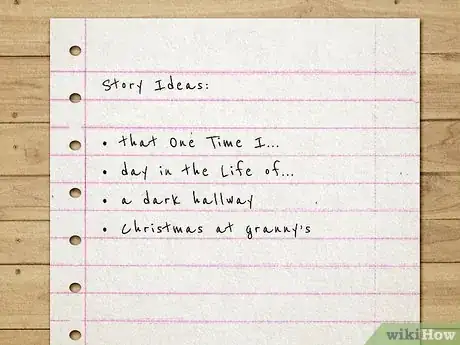 Story Ideas:
• that One Time I...
• day in the Life of...
• a dark hallway
• Christmas at granny's
wikiHow